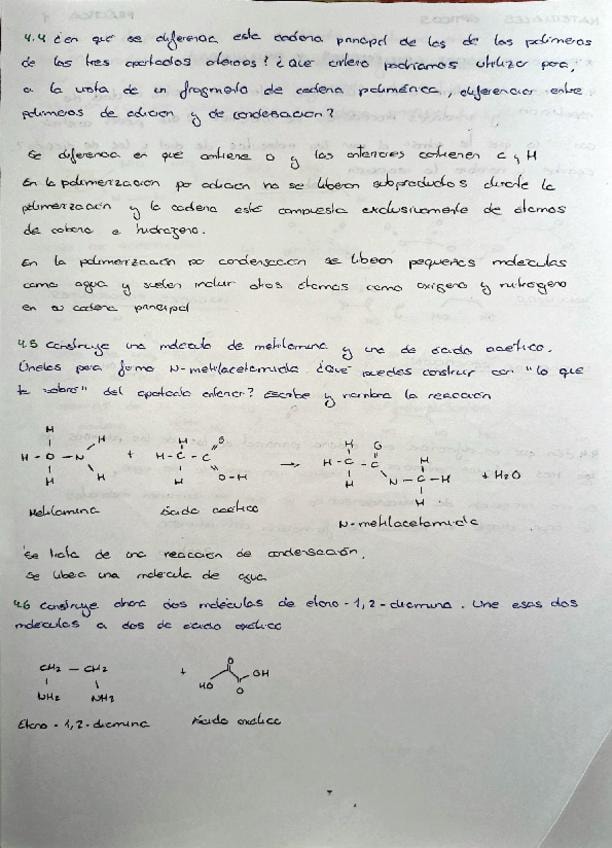 4.4 ¿en que se diferencia esta cadena principal de las de los polímeros
de los tres apartados anteriores? ¿Qué criterio podríamos utilizar para,
a la vista de un fragmento de cadena polimérica, diferenciar entre
polímeros de adición y de condensación?
Se diferencia en que contiene O y los anteriores contienen C y H
En la polimerización por adición no se liberan subproductos durante la
polimerización y la cadena está compuesta exclusivamente de átomos
de carbono e hidrógeno.
En la polimerización por condensación se liberan pequeñas moléculas
como agua y suelen incluir otros átomos como oxígeno y nitrógeno
en su cadena principal
4.5 Construye una molécula de metilamina y una de ácido acético.
Únelas para formar N-metilacetamida ¿Qué puedes construir con "lo que
te sobró" del apartado anterior? Escribe y nombra la reacción
H H H O H O
H - O - N + H - C - C → H - C - C H + H2O
H H H O - H H N - C - H
H
Metilamina Ácido acético N-metilacetamida
Se trata de una reacción de condensación.
Se libera una molécula de agua
4.6 Construye ahora dos moléculas de etano-1,2-diamina. Une esas dos
moléculas a dos de ácido oxálico
CH2 - CH2 + O OH
NH2 NH2 HO O
Etano-1,2-diamina Ácido oxálico